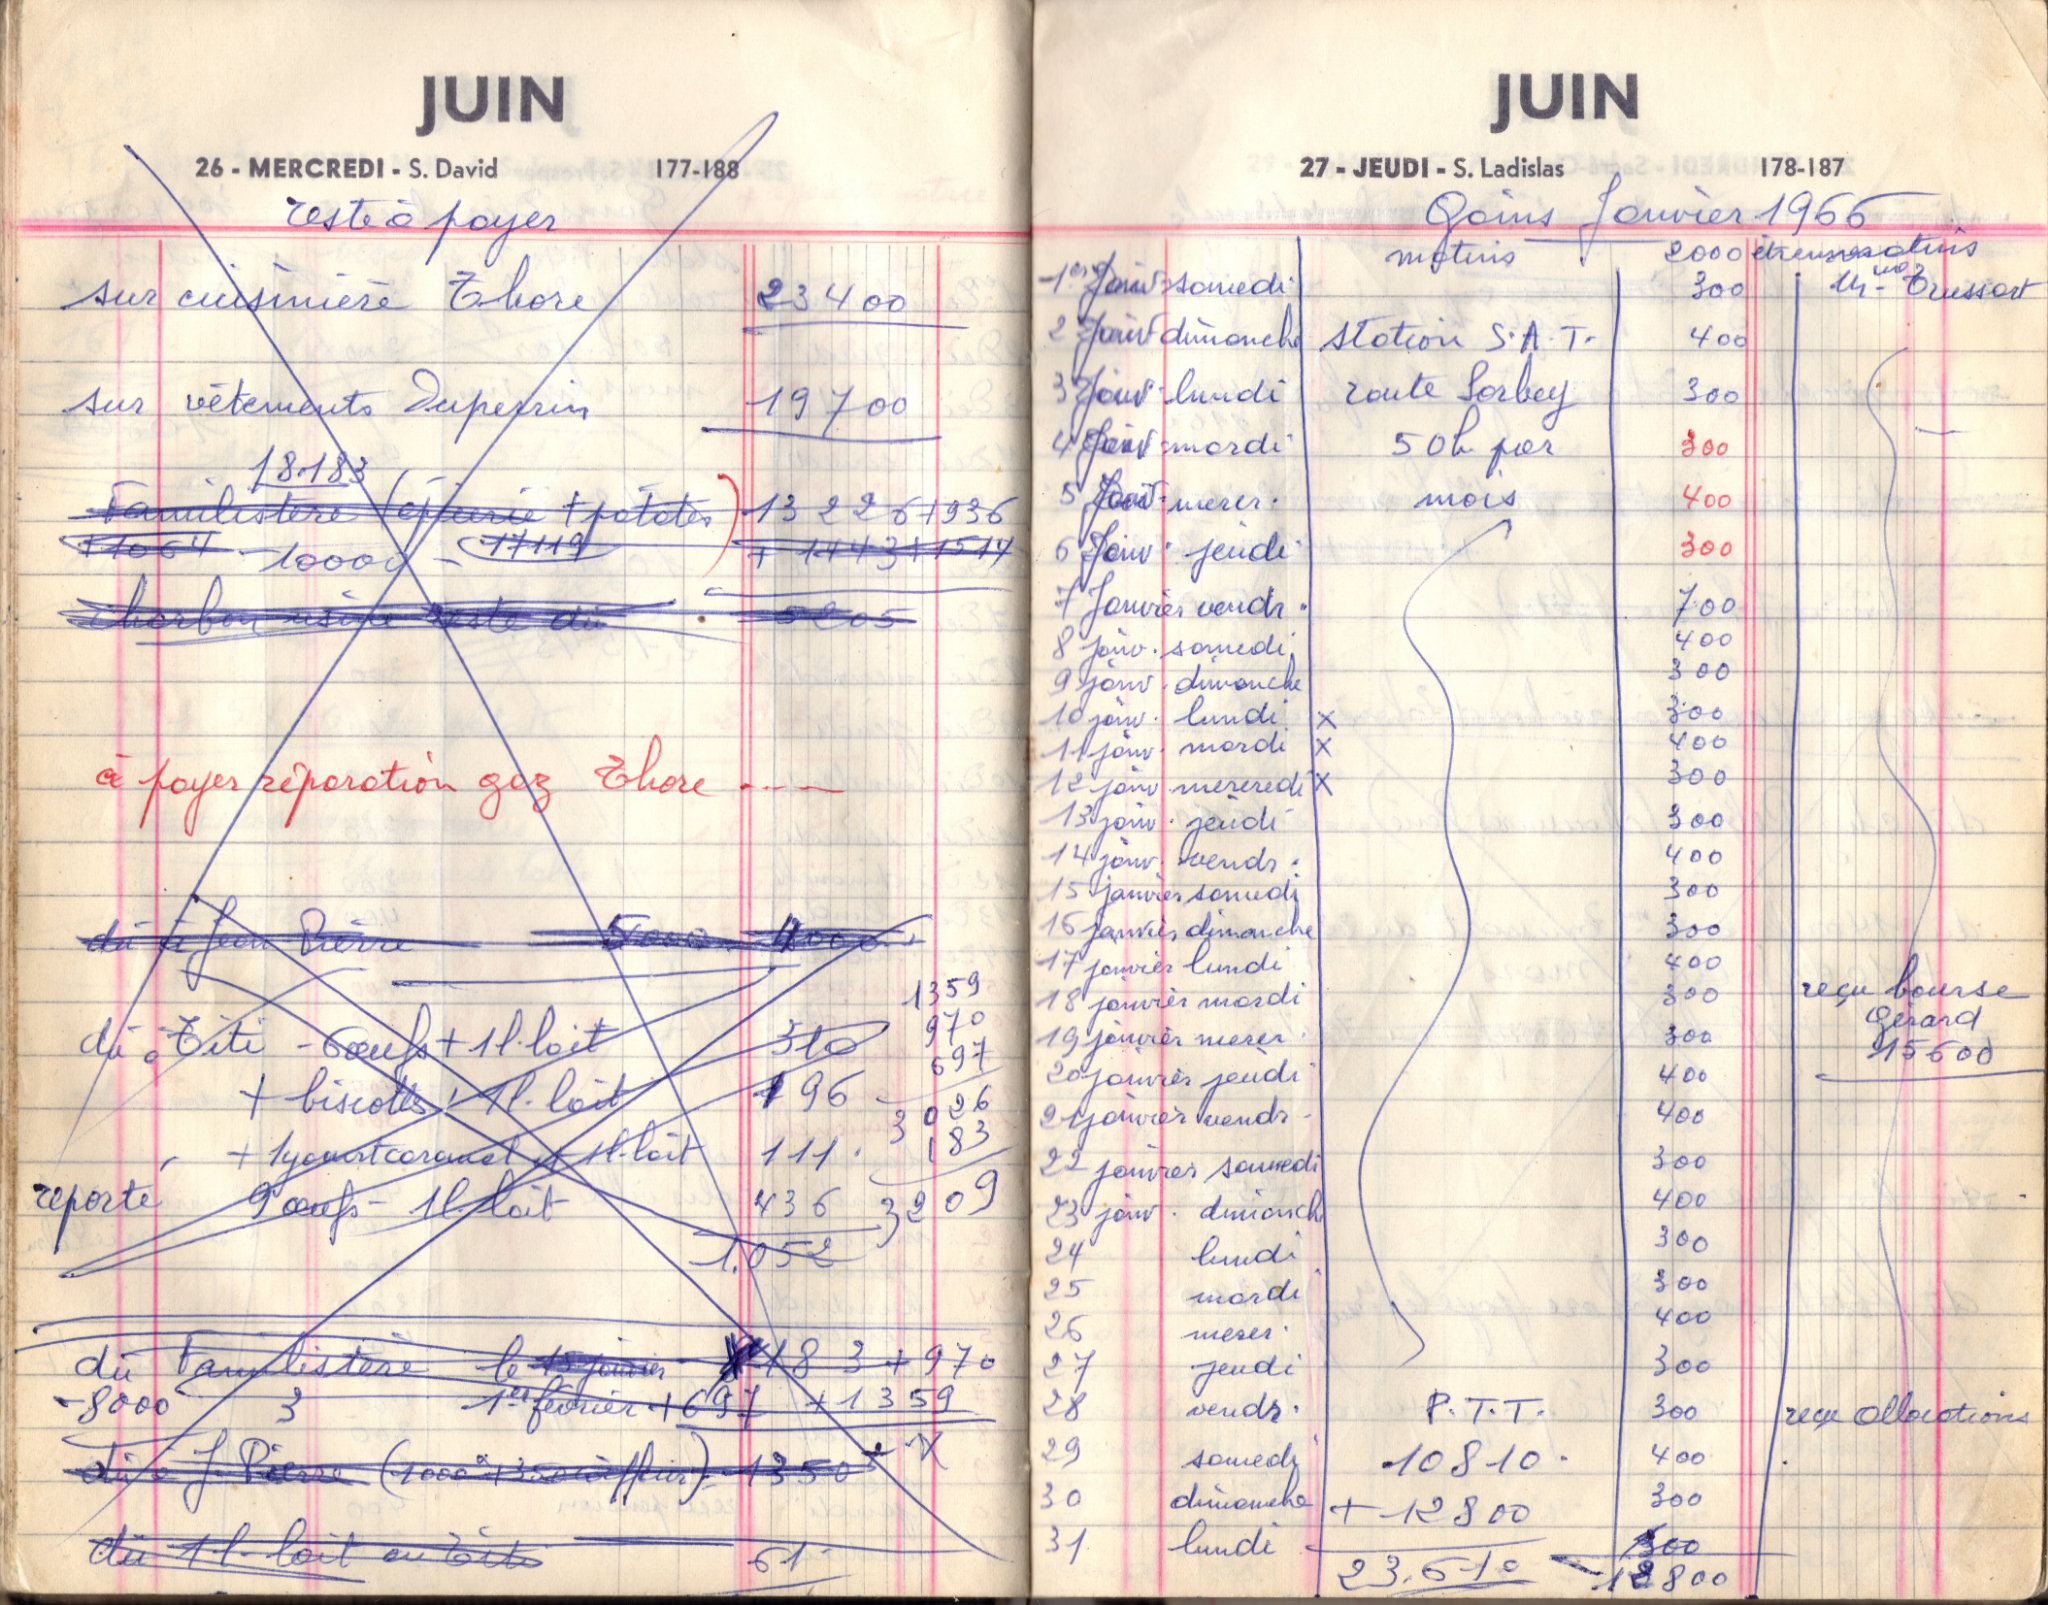 JUIN
26 - MERCREDI - S. David 177-188
reste à payer
sur cuisinière Thore 23400
sur vêtements Duperrin 19700
18.183
Familistère (épicerie + patates) 13226+936
+1064 - 10000 - 17119 + 1443+1514
charbon usine reste dû 5205
à payer réparation gaz Thore ----
dû à Jean Pierre 5000
1359
970
dû à Titi - 6 œufs + 1l. lait 310
697
+ biscottes + 1l. lait 196
3026
183
+ 1 yaourt caramel + 1l. lait 111.
reporté 9 œufs - 1l. lait 436
3209
1.052
dû Familistère le 15 janvier 183 + 970
-8000 3 1er février +697 +1359
dû à J. Pierre (1000 + 350 coiffeur) - 1350
dû 1l. lait au Titi 61
JUIN
27 - JEUDI - S. Ladislas 178-187
Gains Janvier 1966
matins 2000 étrennes
1er Janv. samedi 300 Mme Trussart
2 Janv dimanche station S.A.T. 400
3 Janv. lundi route Sorbey 300
4 Janv. mardi 50h par 300
5 Janv. mercr. mois 400
6 Janv. jeudi 300
7 Janvier vendr. 700
8 janv. samedi 400
9 janv. dimanche 300
10 janv. lundi x 300
11 janv. mardi x 400
12 janv. mercredi x 300
13 janv. jeudi 300
14 janv. vendr. 400
15 janvier samedi 300
16 janvier dimanche 300
17 janvier lundi 400
18 janvier mardi 300 reçu bourse
Gérard
19 janvier mercr. 300 15600
20 janvier jeudi 400
21 janvier vendr. 400
22 janvier samedi 300
23 janv. dimanche 400
24 lundi 300
25 mardi 300
26 mercr. 400
27 jeudi 300
28 vendr. P.T.T. 300 reçu allocations
29 samedi 10810. 400
30 dimanche + 12800 300
31 lundi 300
23.610 12800